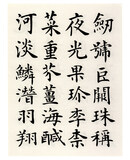 劒號巨闕珠稱
夜光果珎李柰
菜重芥薑海鹹
河淡鱗潛羽翔